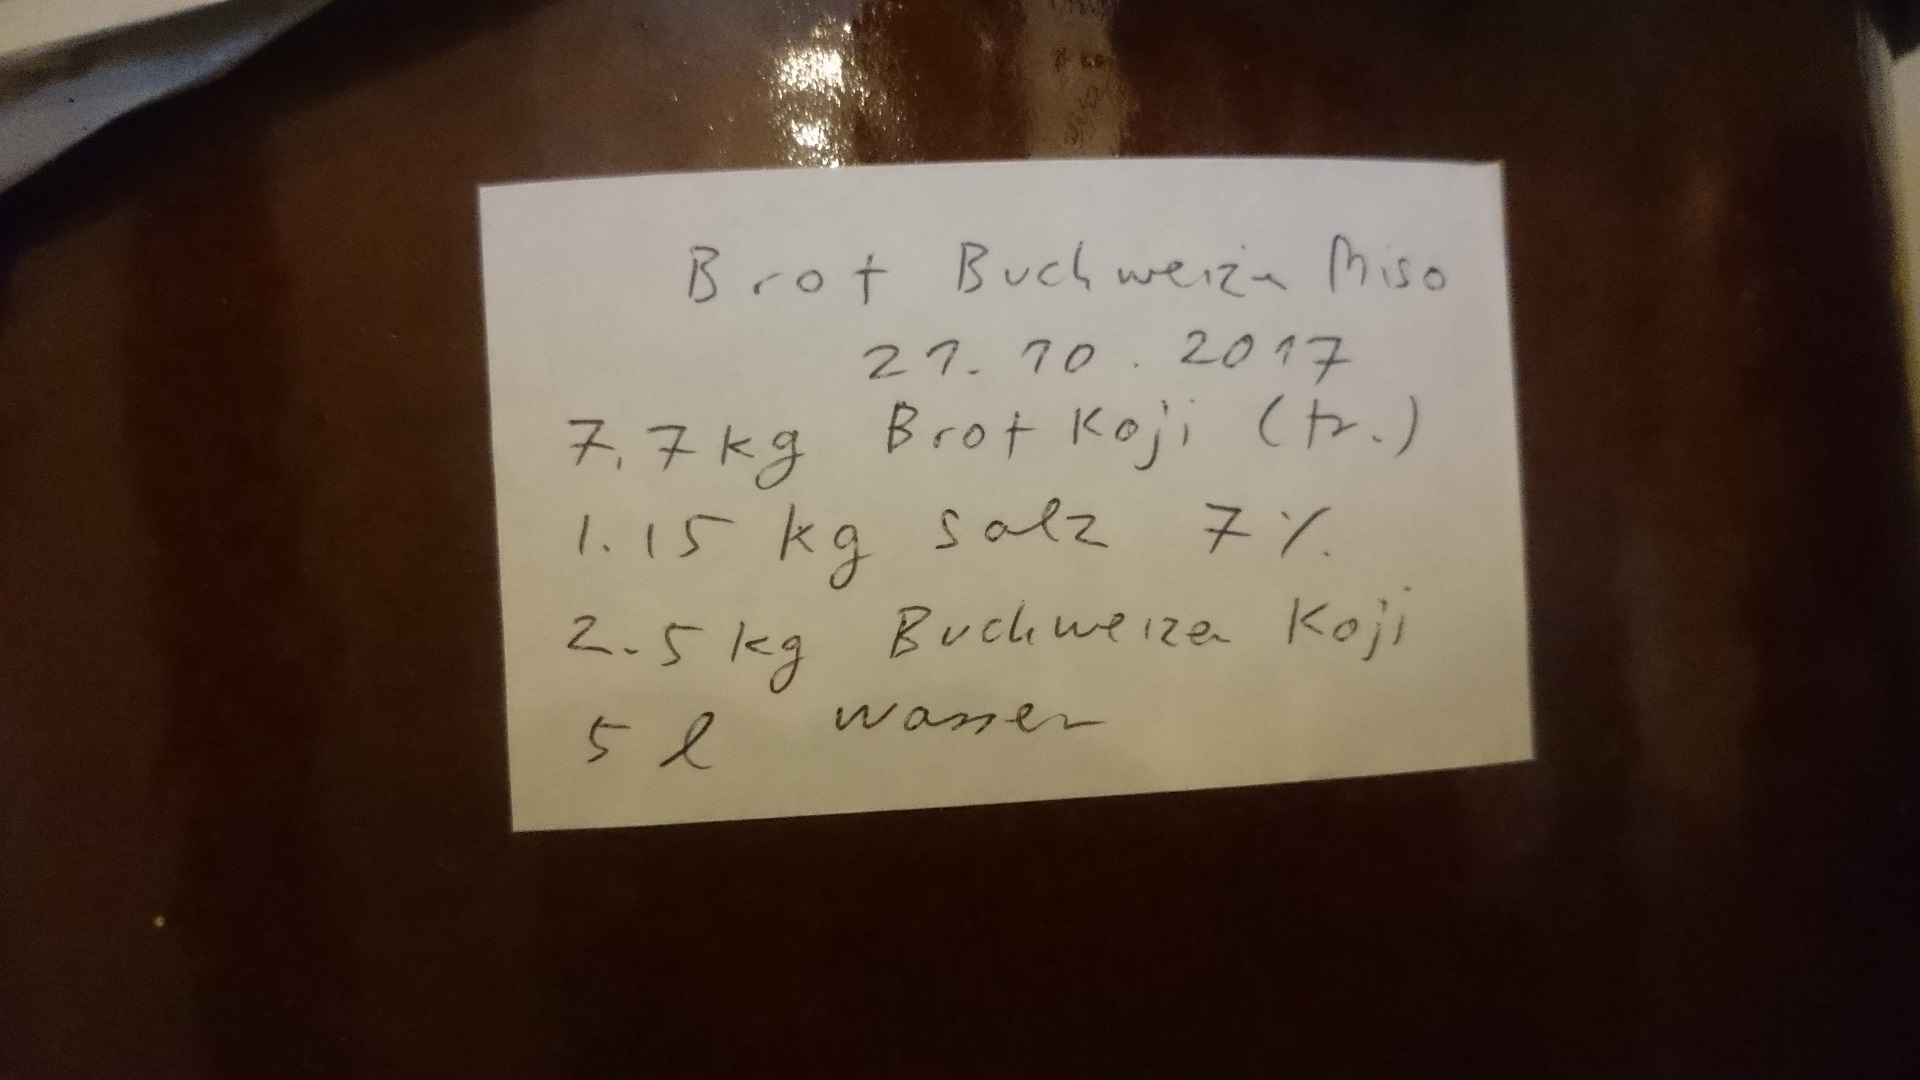 Brot Buchweizen Miso
21.10.2017
7.7kg Brot Koji (tr.)
1.15 kg salz 7%
2.5kg Buchweizen Koji
5 l wasser